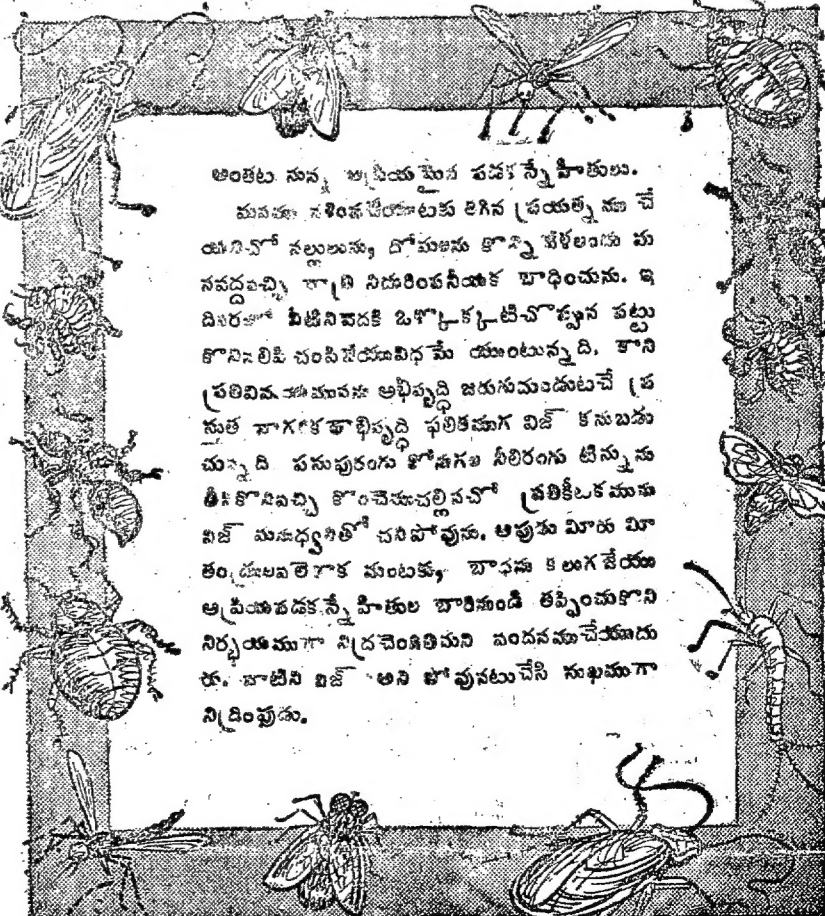 అంతెట నున్న అప్రియమైన పడకస్నేహితులు.
మనము నశింపజేయుటకు తగిన ప్రయత్నము చే
యనిచో నల్లులును, దోమలును కొన్ని వేళలందు మ
నవద్దవచ్చి రాత్రి నిదురింపనీయక బాధించును. ఇ
దివరలో వీటినివెదకి ఒక్కొక్కటిచొప్పున పట్టు
కొనినలిపి చంపివేయువిధమే యుంటున్నది. కాని
ప్రతివిషయమునను అభివృద్ధి జరుగుచుండుటచే ప్ర
స్తుత నాగరికాభివృద్ధి ఫలితముగ విజ్ కనుబడు
చున్నది పసుపురంగు నీలిరంగు టిన్నును
తీసికొనివచ్చి కొంచెముచల్లినచో ప్రతికీటకమును
విజ్ మనుధ్వనితో చనిపోవును. అపుడు మీరు మీ
తండ్రులవలెగాక మంటకు, బాధను కలుగజేయు
అప్రియపడకస్నేహితుల బారినుండి తప్పించుకొని
నిర్భయముగా నిద్రచెందితిమని వందనముచేయుదు
రు. వాటిని విజ్ అని పోవునటుచేసి సుఖముగా
నిద్రింపుడు.